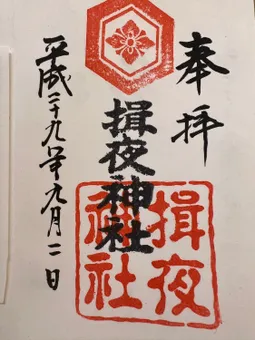 奉拝
揖夜神社
揖夜
神社
平成二十九年九月二日